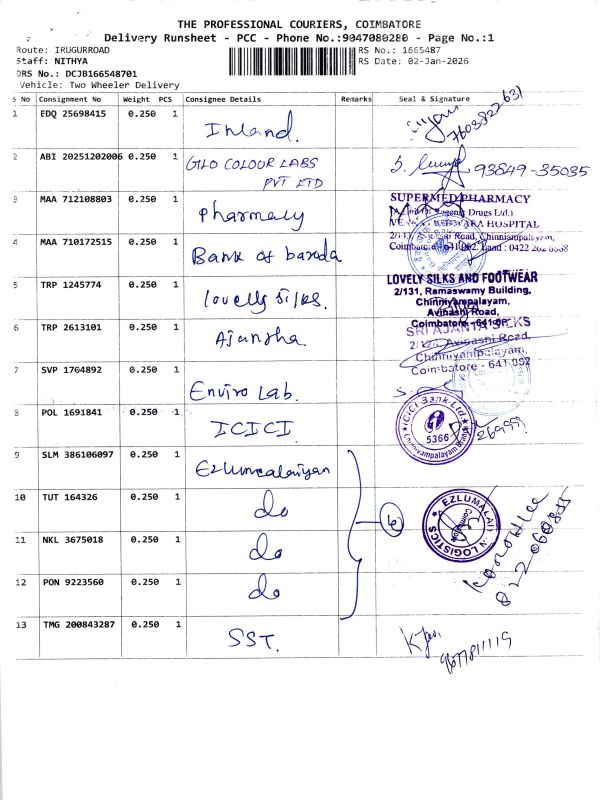 THE PROFESSIONAL COURIERS, COIMBATORE
Delivery Runsheet - PCC - Phone No.:9047080280 - Page No.:1
Route: IRUGURROAD
RS No.: 1665487
Staff: NITHYA
RS Date: 02-Jan-2026
DRS No.: DCJB166548701
Vehicle: Two Wheeler Delivery
S No Consignment No Weight PCS Consignee Details Remarks Seal & Signature
1 EDQ 25698415 0.250 1 Inland. 7603822631
2 ABI 20251202006 0.250 1 GILO COLOUR LABS PVT LTD 93849-35035
3 MAA 712108803 0.250 1 Pharmacy
SUPERMED PHARMACY
Drugs Ltd.)
HOSPITAL
Road, Chinniampalayam,
4 MAA 710172515 0.250 1 Bank of baroda
5 TRP 1245774 0.250 1 lovelly silks.
LOVELY SILKS AND FOOTWEAR
2/131, Ramaswamy Building,
Chinniyampalayam,
Avinashi Road,
Coimbatore
6 TRP 2613101 0.250 1 Ajantha.
SRI AJANTA SILKS
Avinashi Road,
Chinniyampalayam,
Coimbatore - 641 062
7 SVP 1764892 0.250 1 Enviro Lab.
8 POL 1691841 0.250 1 ICICI
ICICI Bank Ltd
5366
Chinniyampalayam Branch
9 SLM 386106097 0.250 1 Ezlumalaiyan
10 TUT 164326 0.250 1 do
EZLUMALAI
LOGISTICS
Coimbatore
11 NKL 3675018 0.250 1 do
12 PON 9223560 0.250 1 do
13 TMG 200843287 0.250 1 SST. 9677811119